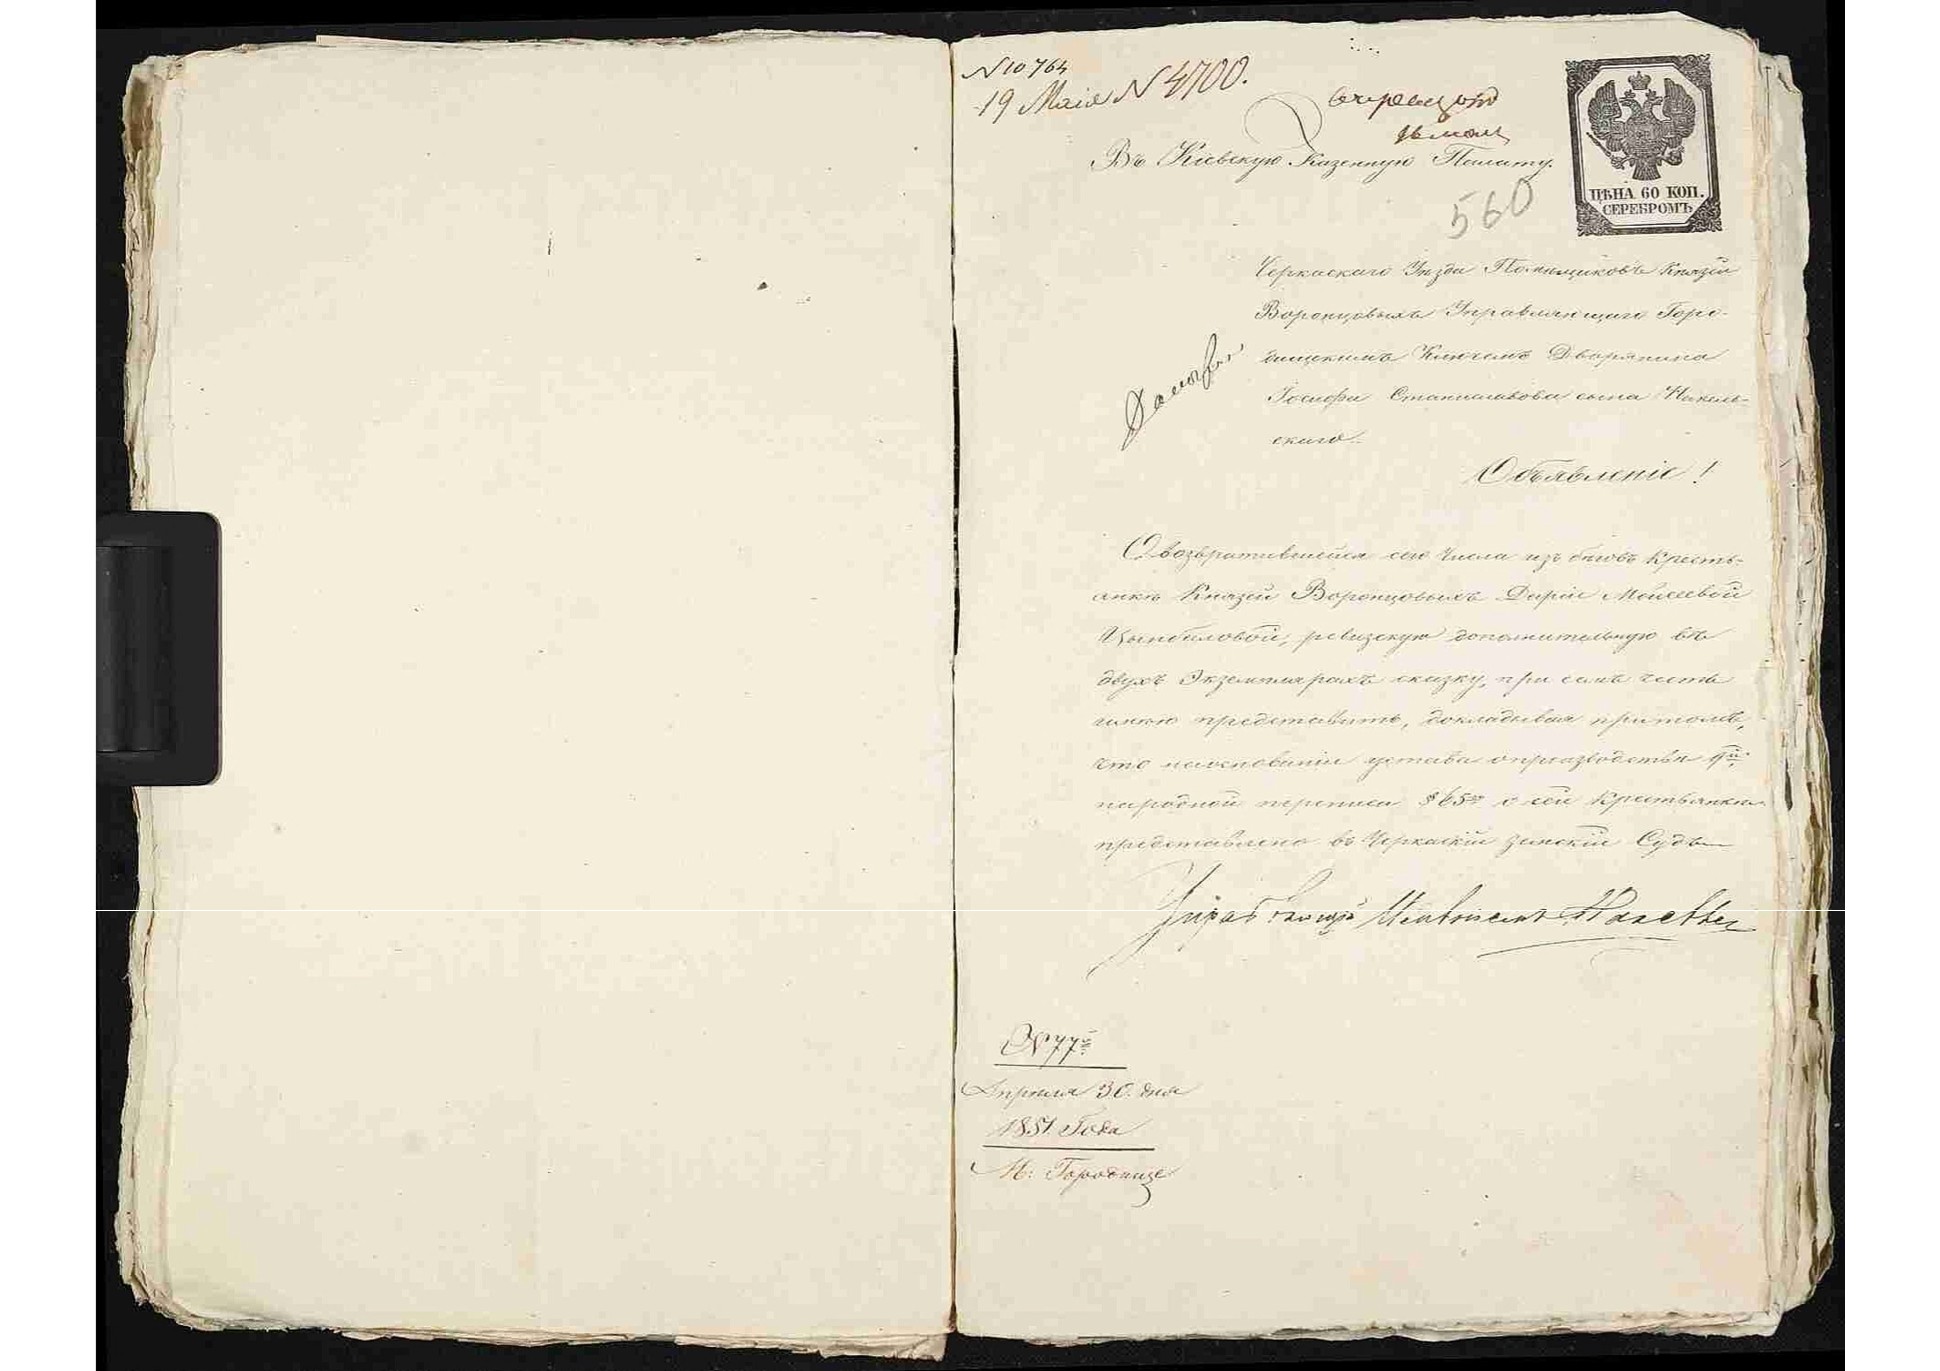 N 10764
19 Маія N 4700.
Въ Кіевскую Казенную Палату.
560
ЦѢНА 60 КОП.
СЕРЕБРОМЪ
Черкаскаго Уѣзда Помѣщиковъ Князей
Воронцовыхъ Управляющаго Горо-
дищскимъ Ключемъ Дворянина
Іосифа Станиславова сына
скаго
Объявленіе!
О возвратившейся сего числа изъ бѣговъ Кресть-
янкѣ Князей Воронцовыхъ Даріи Моисеевой
Цымбаловой, ревизскую дополнительную въ
двухъ Экземплярахъ сказку, при семъ честь
имѣю представить, докладывая притомъ,
что на основаніи устава о производствѣ 9й
народной переписи § 65го о сей Крестьянкѣ
представлено въ Черкаскій земскій Судъ
N 77й
Апрѣля 30. дня
1851 Года
М: Городище